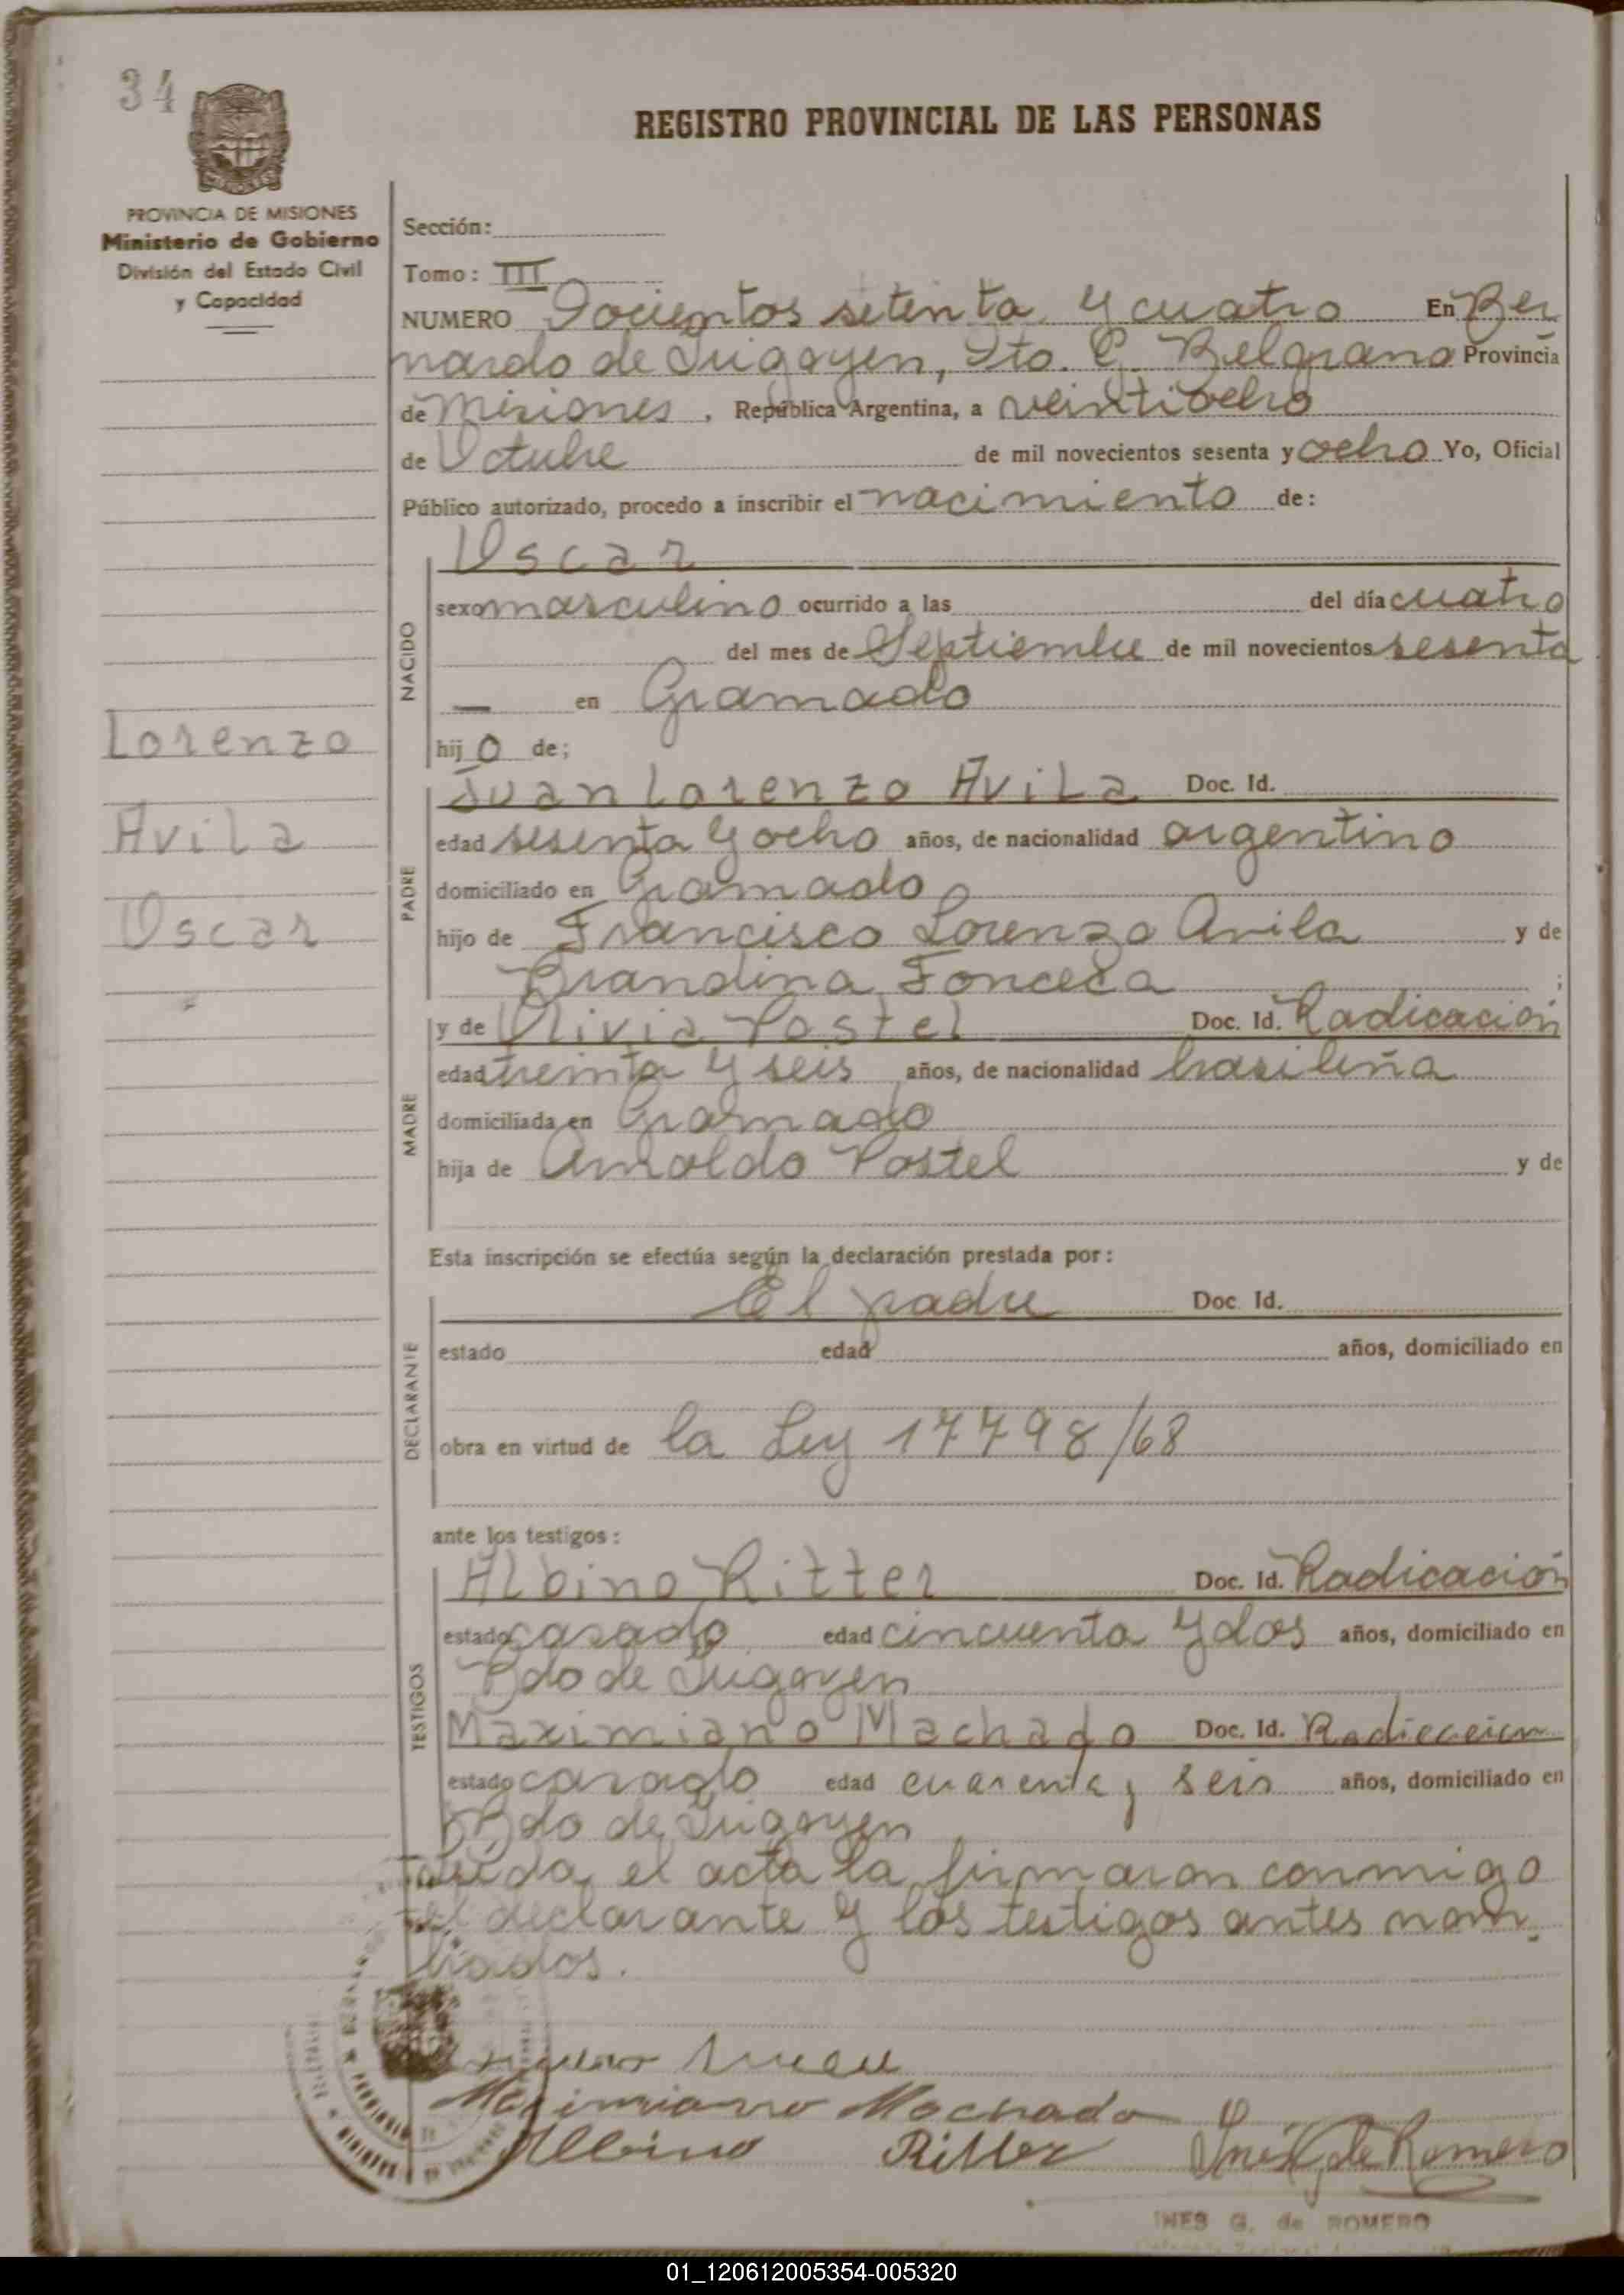 34
REGISTRO PROVINCIAL DE LAS PERSONAS
PROVINCIA DE MISIONES
Ministerio de Gobierno
División del Estado Civil
y Capacidad
Sección:
Tomo: III
NUMERO Docientos setenta y cuatro En Ber
nardo de Irigoyen, Dto. G. Belgrano Provincia
de Misiones, República Argentina, a veintiocho
de Octubre de mil novecientos sesenta y ocho Yo, Oficial
Público autorizado, procedo a inscribir el nacimiento de:
NACIDO
Oscar
sexo masculino ocurrido a las del día cuatro
del mes de Septiembre de mil novecientos sesenta
— en Gramado
hijo de;
Lorenzo
Avila
Oscar
PADRE
Juan Lorenzo Avila Doc. Id.
edad sesenta y ocho años, de nacionalidad argentino
domiciliado en Gramado
hijo de Francisco Lorenzo Avila y de
Brandina Fonceca ;
MADRE
y de Olivia Postel Doc. Id. Radicación
edad treinta y seis años, de nacionalidad brasileña
domiciliada en Gramado
hija de Arnoldo Postel y de
Esta inscripción se efectúa según la declaración prestada por:
DECLARANTE
El padre Doc. Id.
estado edad años, domiciliado en
obra en virtud de la Ley 17798/68
ante los testigos:
TESTIGOS
Albino Ritter Doc. Id. Radicación
estado casado edad cincuenta y dos años, domiciliado en
Bdo de Irigoyen
Maximiano Machado Doc. Id. Radicación
estado casado edad cuarenta y seis años, domiciliado en
Bdo de Irigoyen
Leída el acta la firmaron conmigo
el declarante y los testigos antes nom
brados.
Maximiano Machado
Albino Ritter Inés G. de Romero
INES G. de ROMERO
01_120612005354-005320